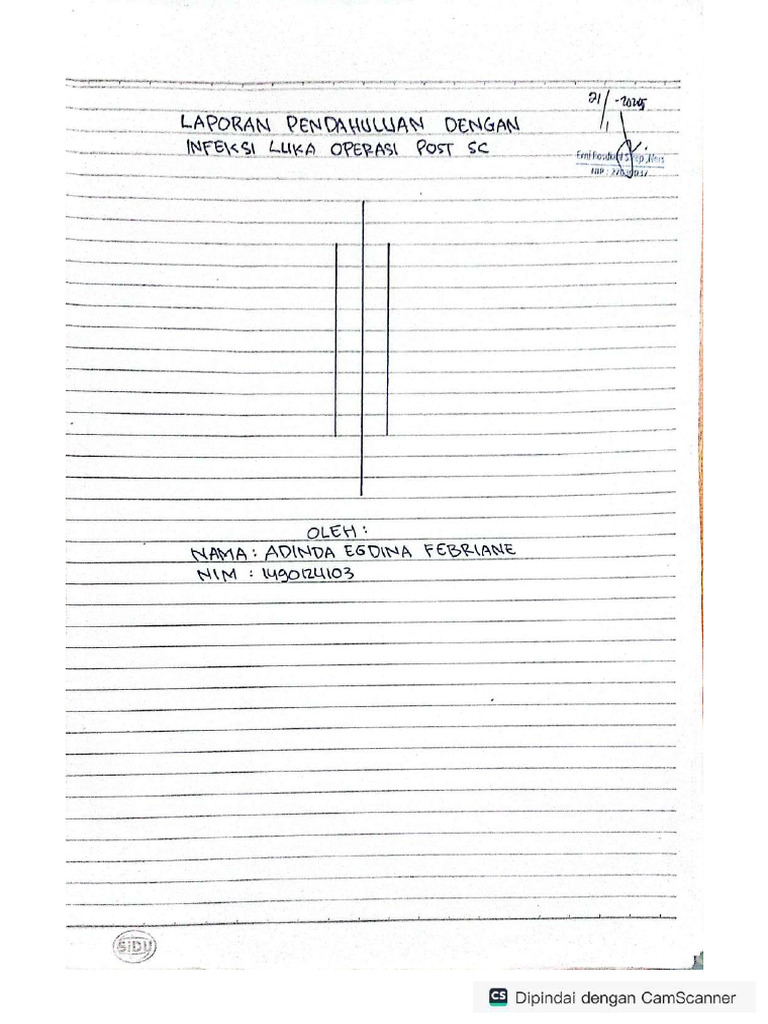 LAPORAN PENDAHULUAN DENGAN
INFEKSI LUKA OPERASI POST SC
21/1-2025
OLEH :
NAMA : ADINDA EGDINA FEBRIANE
NIM : 1490124103
SiDU
CS Dipindai dengan CamScanner